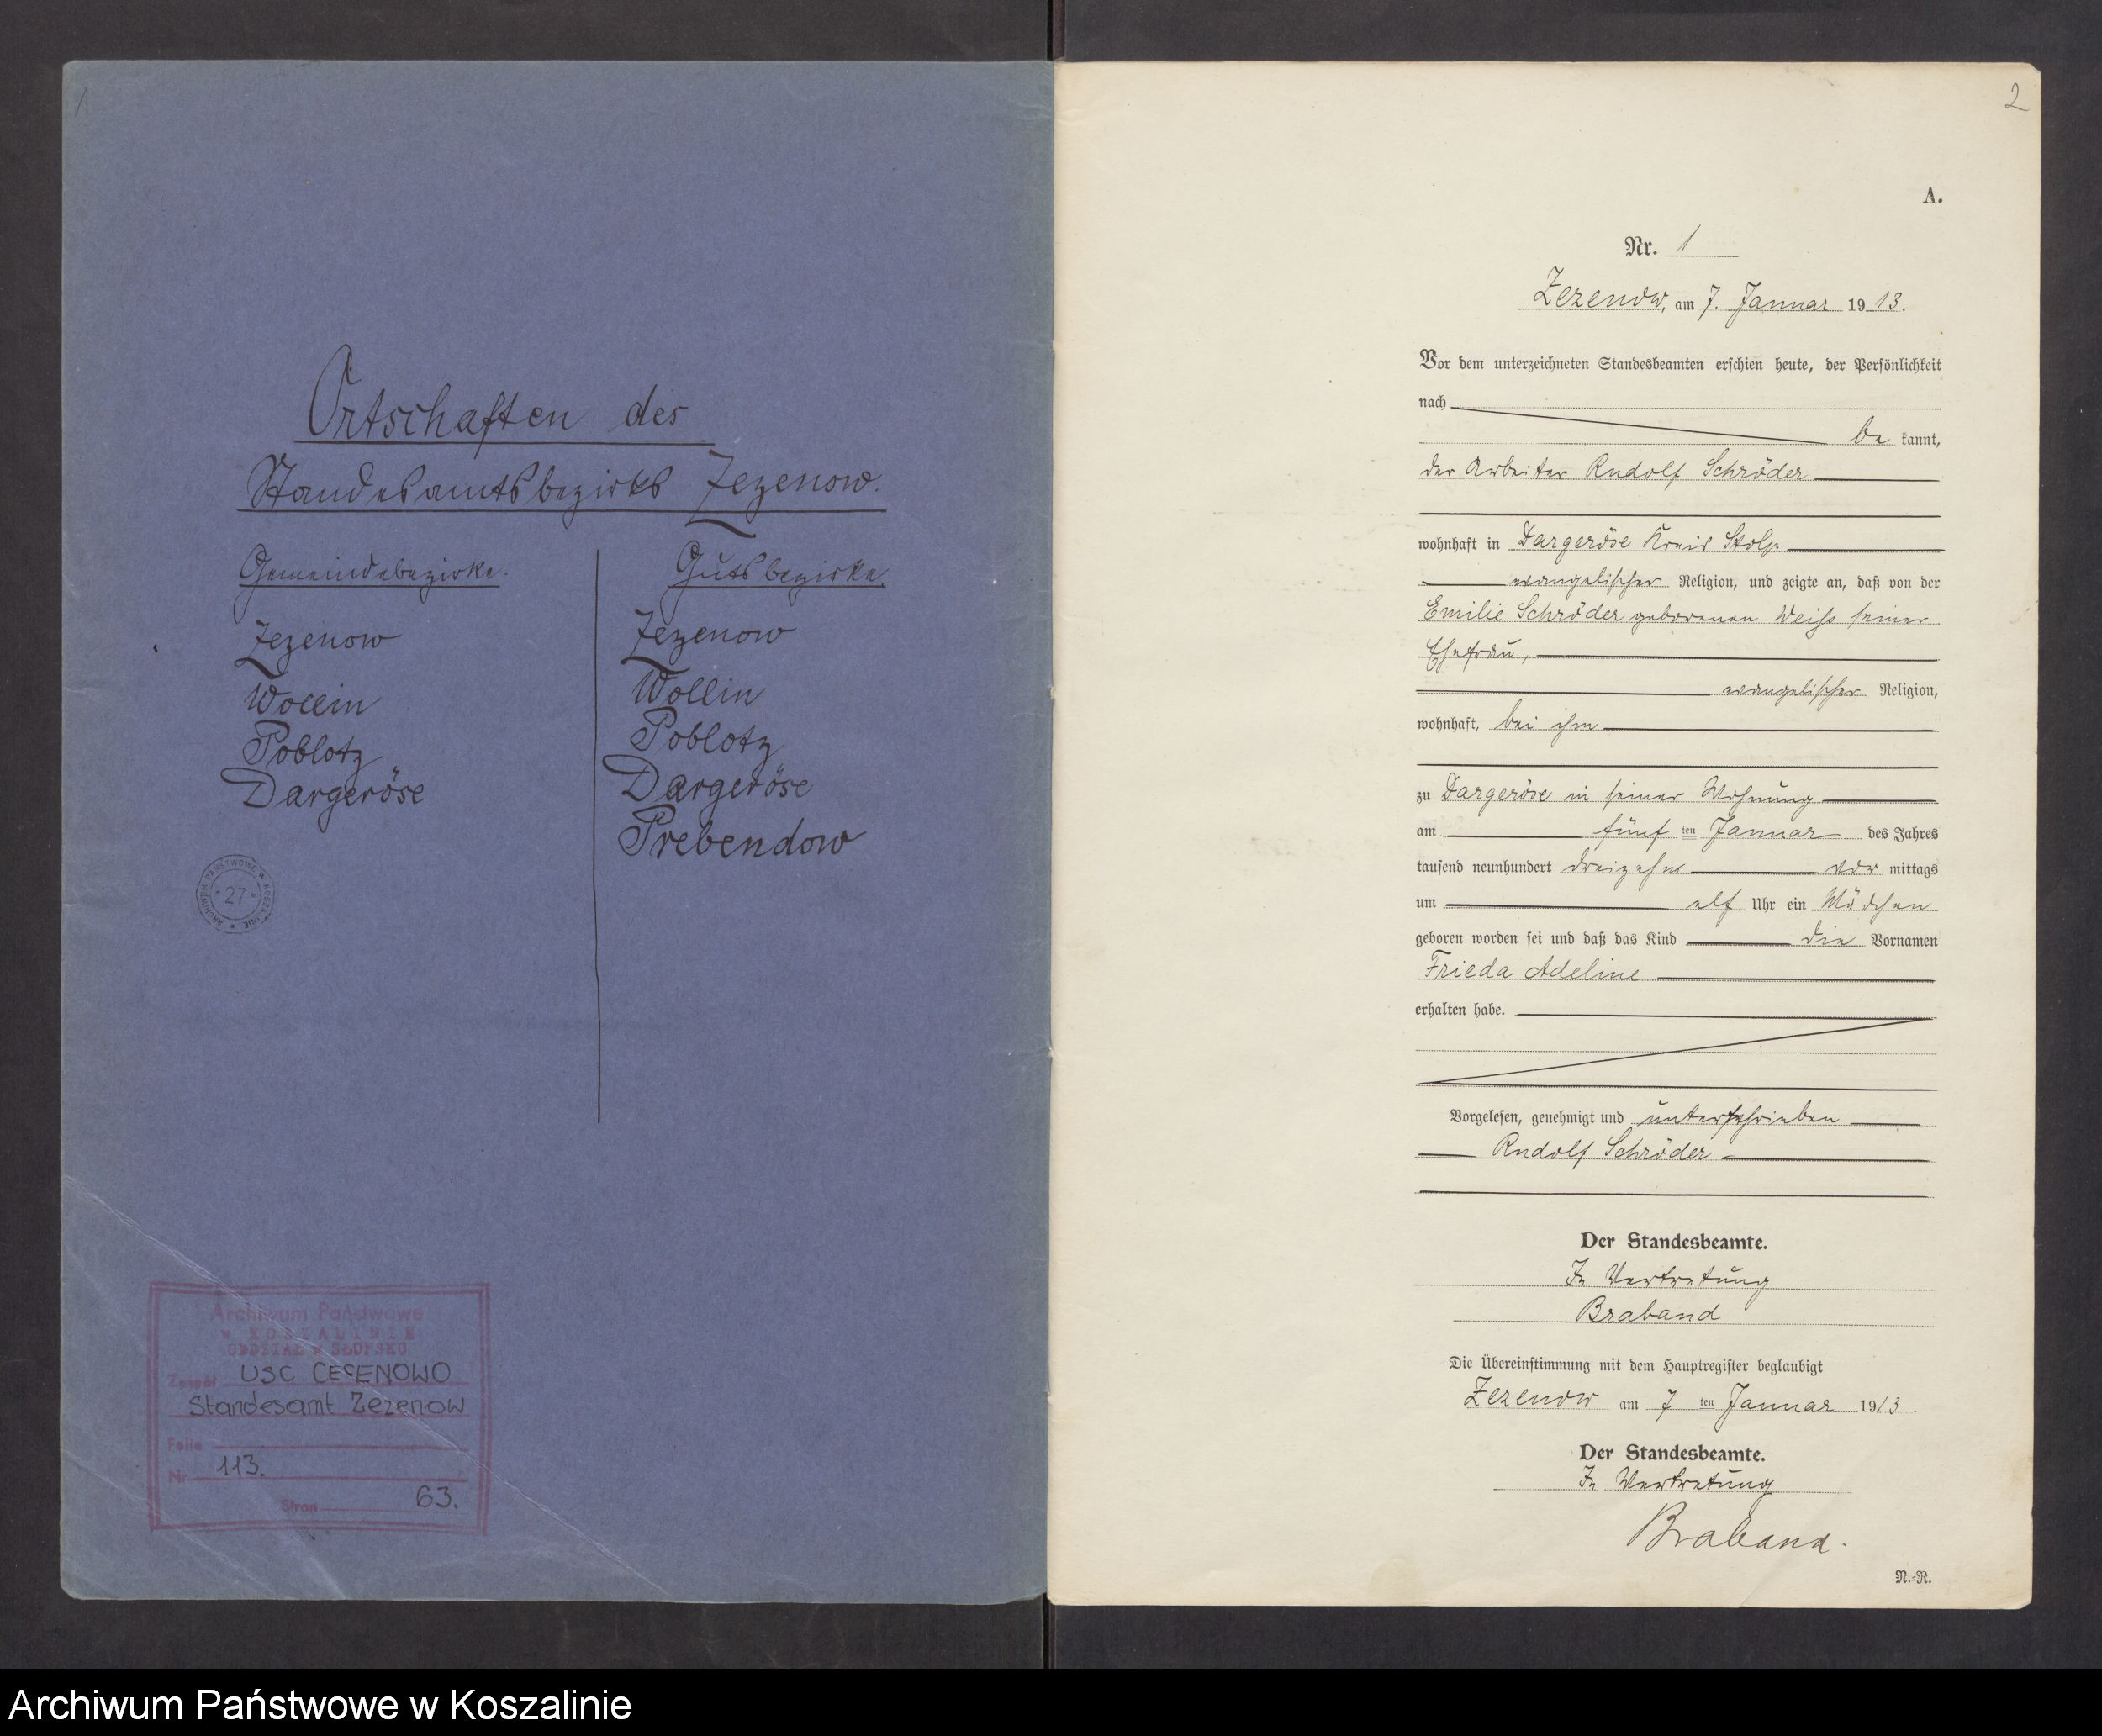 1
Ortschaften des
Standesamtsbezirks Zezenow.
Gemeindebezirke.
Zezenow
Wollin
Poblotz
Dargeröse
Gutsbezirke.
Zezenow
Wollin
Poblotz
Dargeröse
Prebendow
ARCHIWUM PAŃSTWOWE W KOSZALINIE
* 27 *
Archiwum Państwowe
w KOSZALINIE
ODDZIAŁ w SŁUPSKU
Zespół USC CECENOWO
Standesamt Zezenow
Nr 113.
Stron 63.
2
A.
Nr. 1
Zezenow, am 7. Januar 1913.
Vor dem unterzeichneten Standesbeamten erschien heute, der Persönlichkeit
nach
be kannt,
der Arbeiter Rudolf Schröder
wohnhaft in Dargeröse Kreis Stolp
evangelischer Religion, und zeigte an, daß von der
Emilie Schröder geborenen Weiß seiner
Ehefrau,
evangelischer Religion,
wohnhaft, bei ihm
zu Dargeröse in seiner Wohnung
am fünf ten Januar des Jahres
tausend neunhundert dreizehn vor mittags
um elf Uhr ein Mädchen
geboren worden sei und daß das Kind die Vornamen
Frieda Adeline
erhalten habe.
Vorgelesen, genehmigt und unterschrieben
Rudolf Schröder
Der Standesbeamte.
In Vertretung
Braband
Die Übereinstimmung mit dem Hauptregister beglaubigt
Zezenow am 7 ten Januar 1913.
Der Standesbeamte.
In Vertretung
Braband.
N.-R.
Archiwum Państwowe w Koszalinie